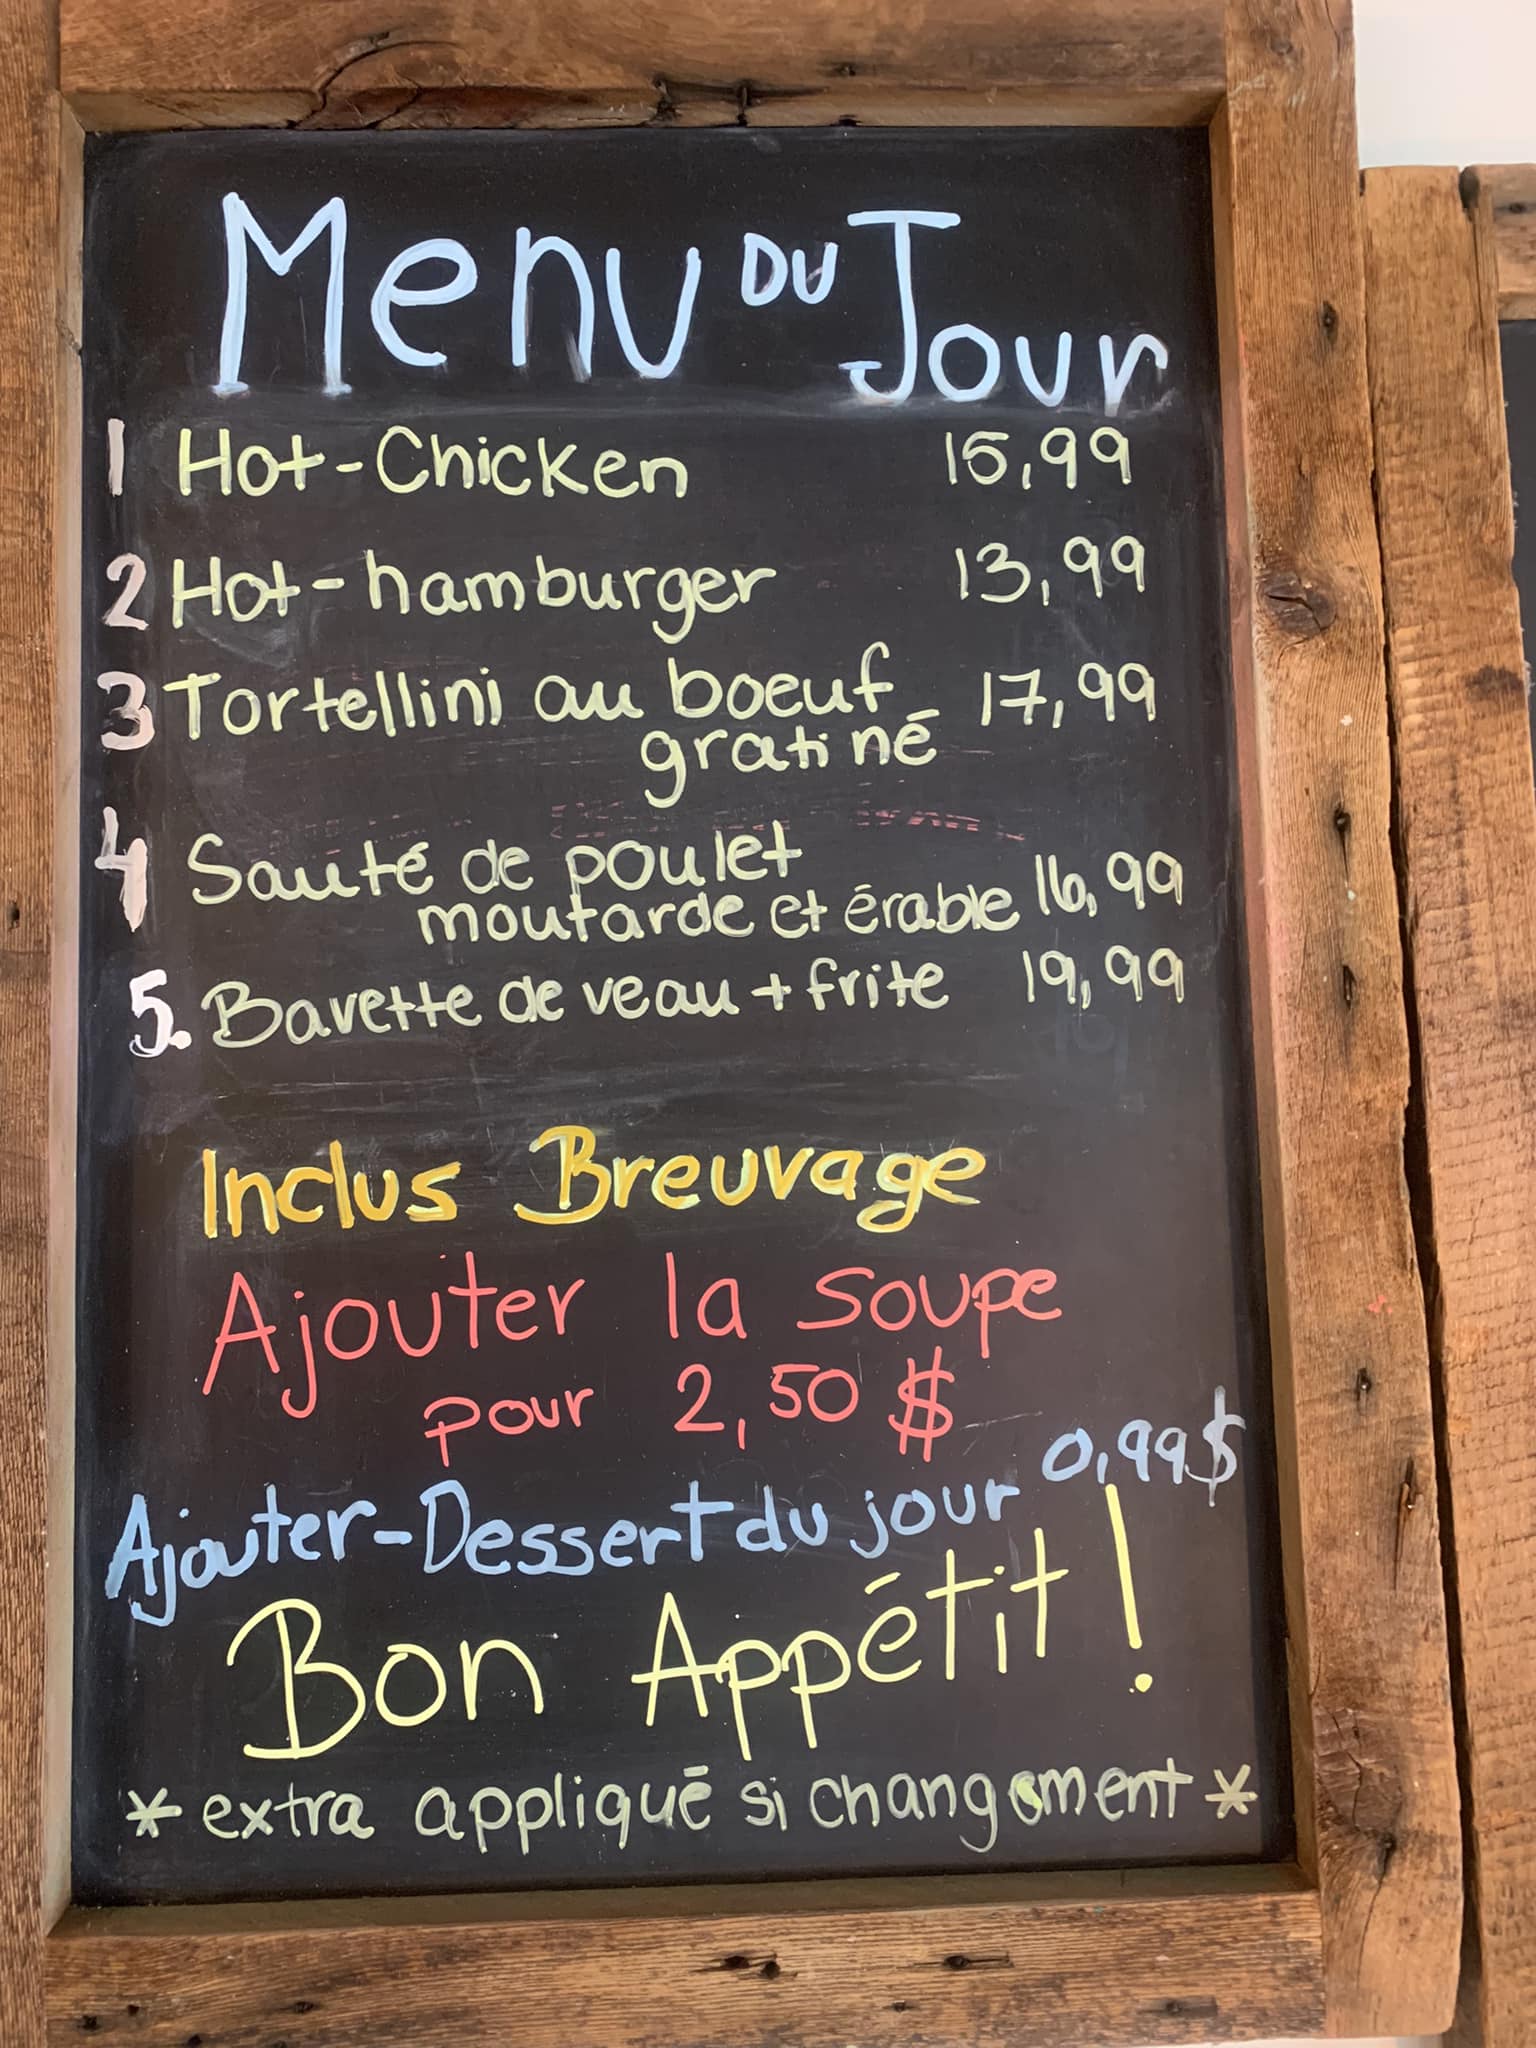 Menu DU Jour
1 Hot-Chicken 15,99
2 Hot-hamburger 13,99
3 Tortellini au boeuf 17,99
gratiné
4 Sauté de poulet
moutarde et érable 16,99
5. Bavette de veau + frite 19,99
Inclus Breuvage
Ajouter la soupe
pour 2,50 $
Ajouter-Dessert du jour 0,99$
Bon Appétit !
* extra appliqué si changement *